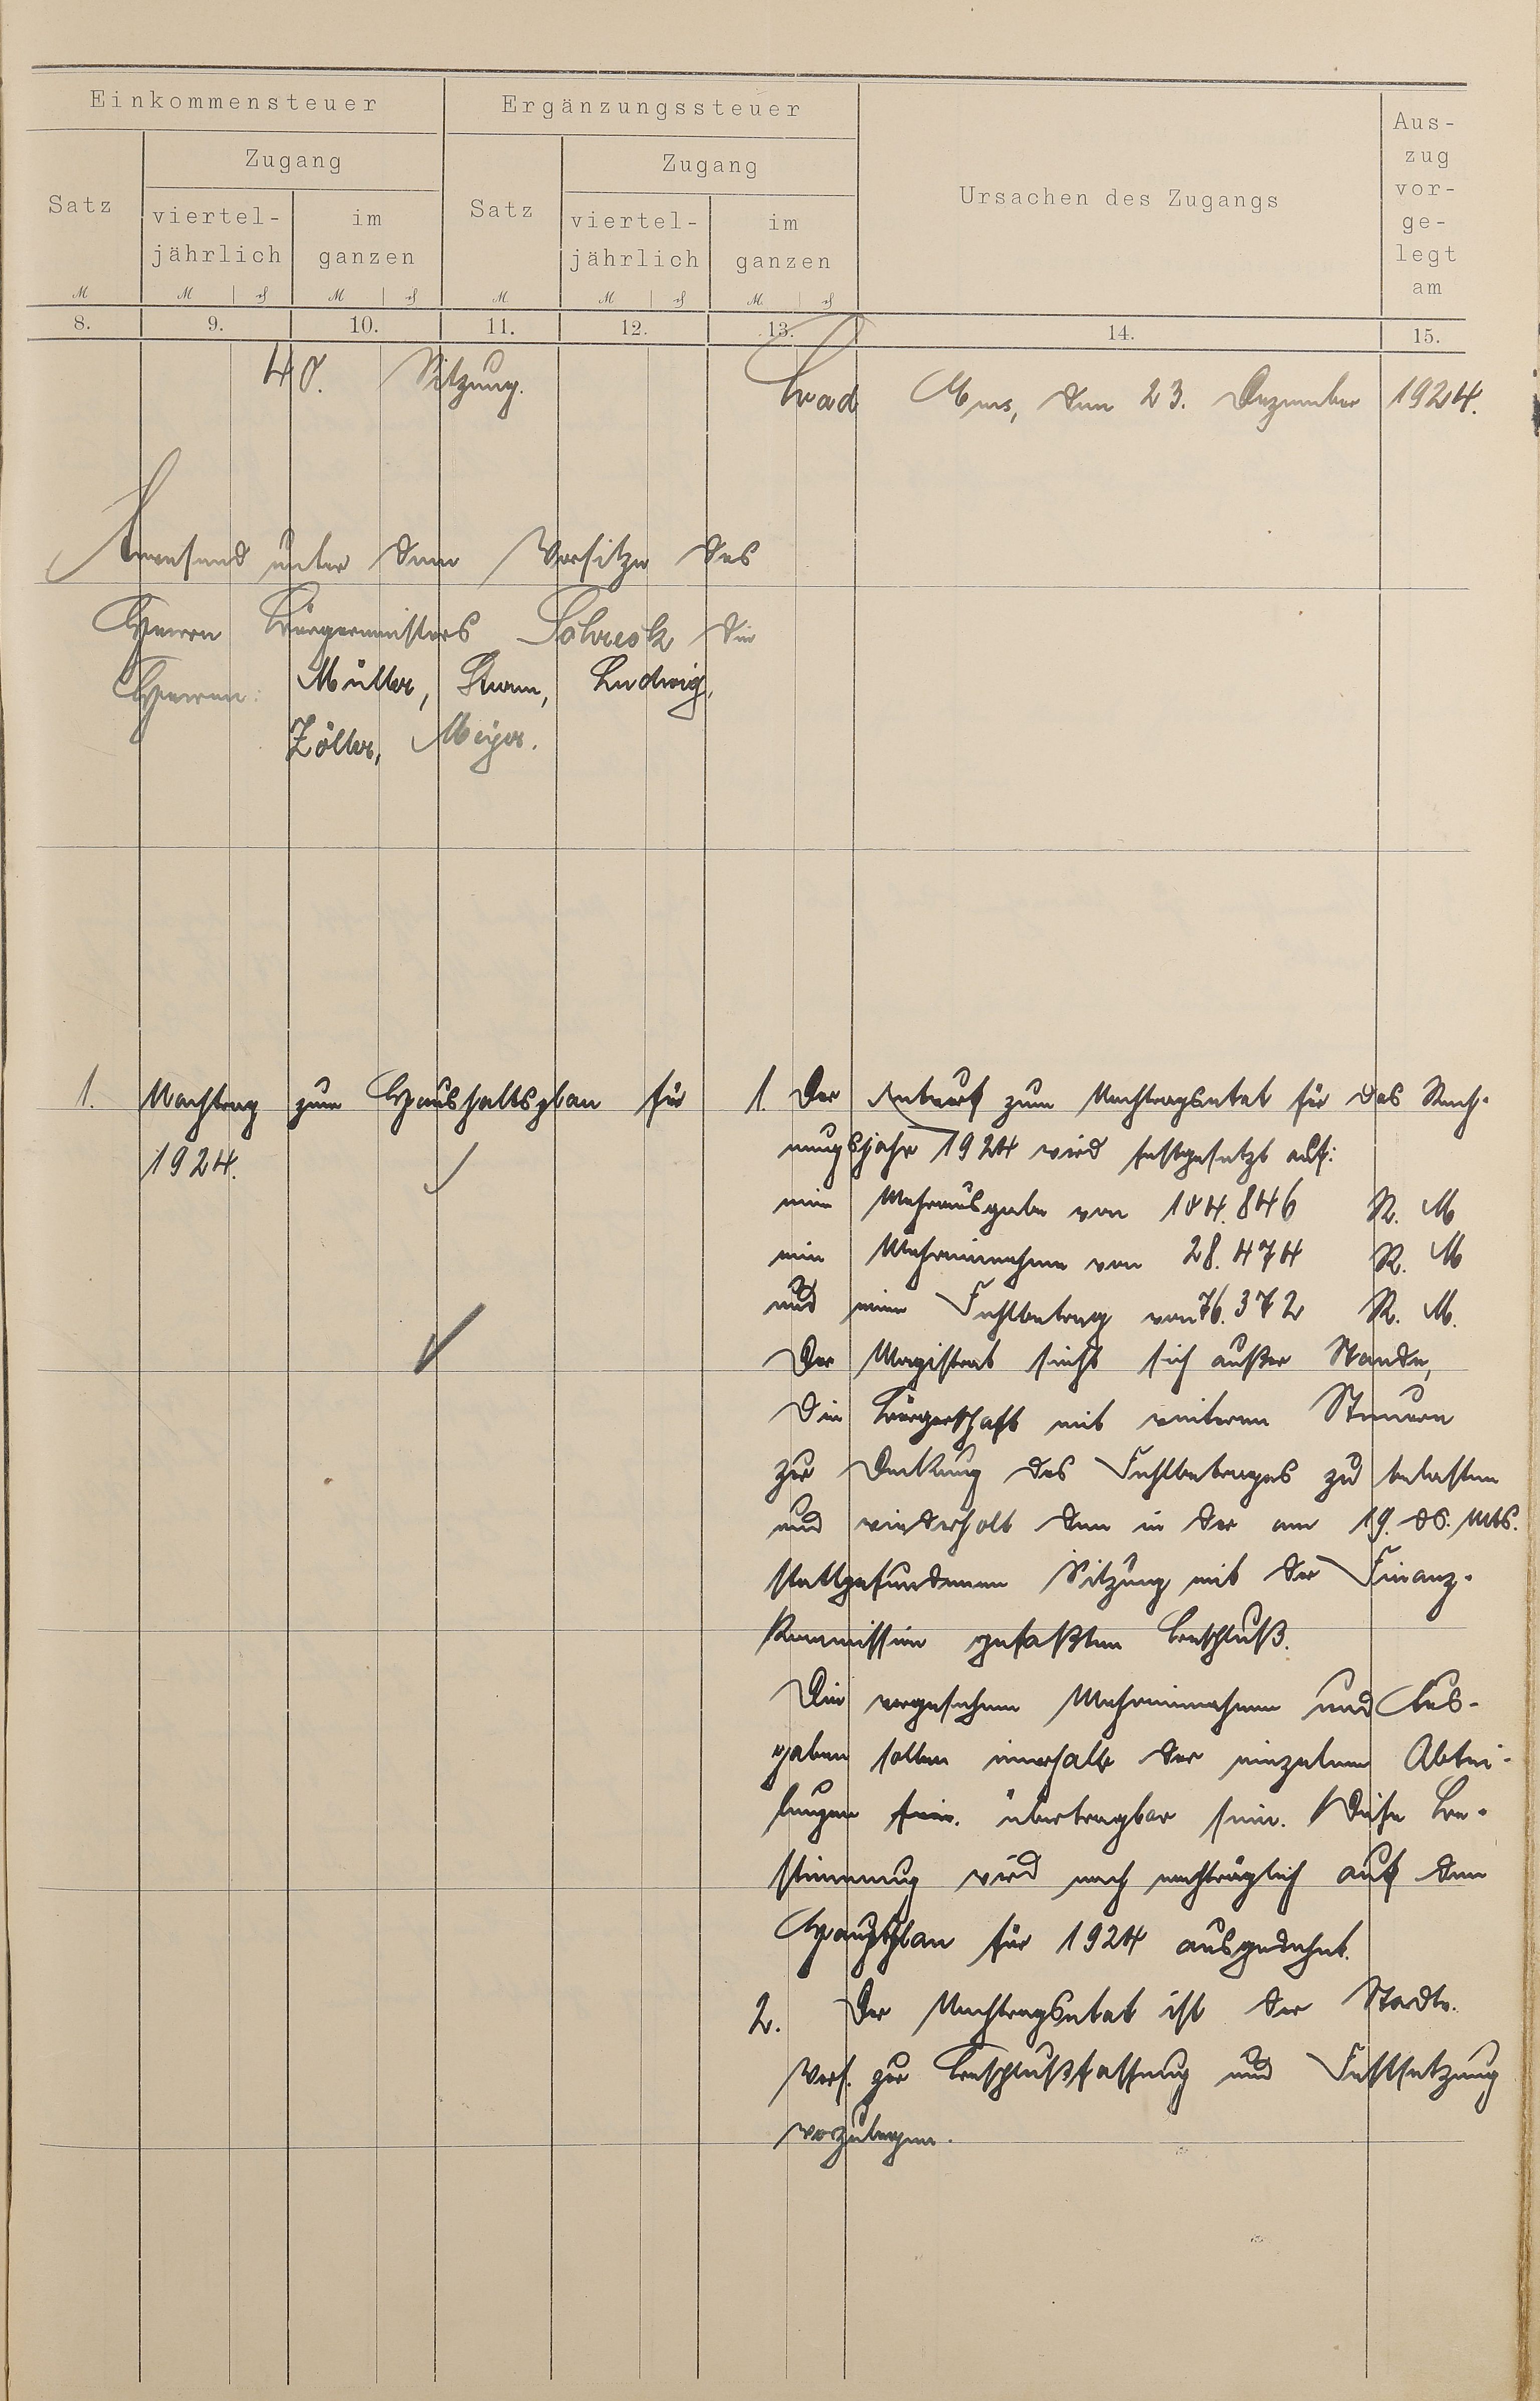 Einkommensteuer
Ergänzungssteuer
Ursachen des Zugangs
Aus-
zug
vor-
ge-
legt
am
Satz
Zugang
viertel-
jährlich
im
ganzen
Satz
Zugang
viertel-
jährlich
im
ganzen
M M ₰ M ₰ M M ₰ M ₰
8. 9. 10. 11. 12. 13. 14. 15.
40. Sitzung. Bad Ems, den 23. Dezember 1924.
Anwesend unter dem Vorsitze des
Herrn Bürgermeisters Schreck die
Herren: Müller, Sturm, Ludwig,
Zöller, Meyer.
1. Nachtrag zum Haushaltsplan für
1924.
1. Der Entwurf zum Nachtragsetat für das Rech-
nungsjahr 1924 wird festgesetzt auf:
eine Mehrausgabe von 104.846 R. M
eine Mehreinnahme von 28.474 R. M
und einen Fehlbetrag von 76.372 R. M.
Der Magistrat sieht sich außer Stande,
die Bürgerschaft mit weiteren Steuern
zur Deckung des Fehlbetrages zu belasten
und wiederholt den in der am 19. ds. Mts.
stattgefundenen Sitzung mit der Finanz-
kommission gefaßten Beschluß.
Die vorgesehenen Mehreinnahmen und Aus-
gaben sollen innerhalb der einzelnen Abtei-
lungen sein. übertragbar sein. Diese Be-
stimmung wird noch nachträglich auf den
Hauptplan für 1924 ausgedehnt.
2. Der Nachtragsetat ist der Stadtv.
Vers. zur Beschlußfassung und Festsetzung
vorzulegen.